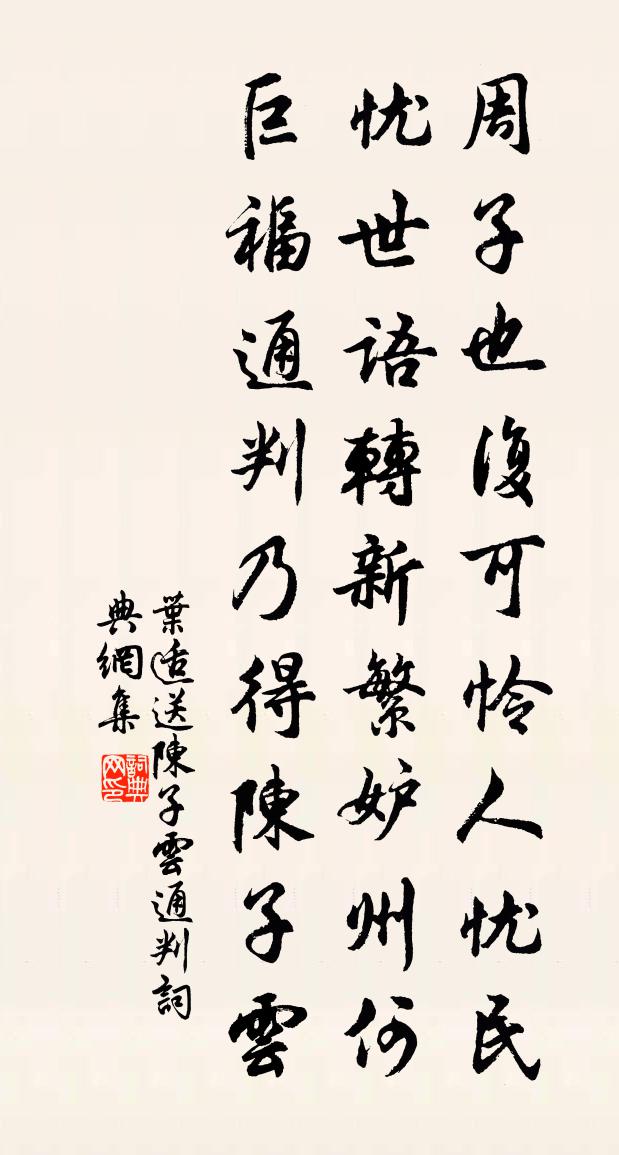 周子也復可怜人忧民
忧世語轉新繁妒州何
巨福通判乃得陳子雲
葉适送陳子雲通判詞
典網集
詞典
网印